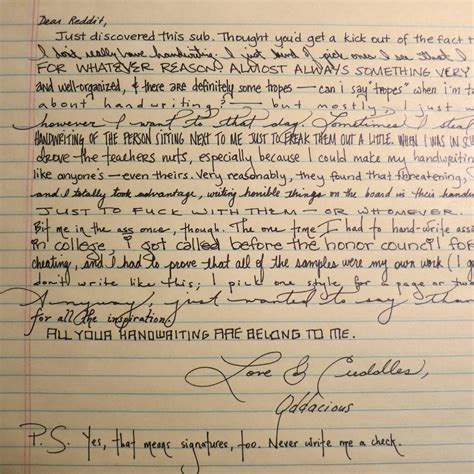 Dear Reddit,
Just discovered this sub. Thought you'd get a kick out of the fact t
I don't really have handwriting. I just kind of pick ones I see that I
FOR WHATEVER REASON. ALMOST ALWAYS SOMETHING VERY
and well-organized, & there are definitely some tropes — can i say "tropes" when i'm ta
about handwriting? — but mostly I just
however I want to that day. Sometimes I steal
HANDWRITING OF THE PERSON SITTING NEXT TO ME JUST TO FREAK THEM OUT A LITTLE. WHEN I WAS IN SC
drove the teachers nuts, especially because I could make my handwriting
like anyone's — even theirs. Very reasonably, they found that threatening,
and I totally took advantage, writing horrible things on the board in their hand
JUST TO FUCK WITH THEM — OR WHOMEVER.
Bit me in the ass once, though. The one time I had to hand-write ass
in college, i got called before the honor council for
cheating, and I had to prove that all of the samples were my own work (I
don't write like this; I pick one style for a page or two
Anyway, just wanted to say than
for all the inspiration.
ALL YOUR HANDWRITING ARE BELONG TO ME.
Love & Cuddles,
Oddacious
P.S. Yes, that means signatures, too. Never write me a check.